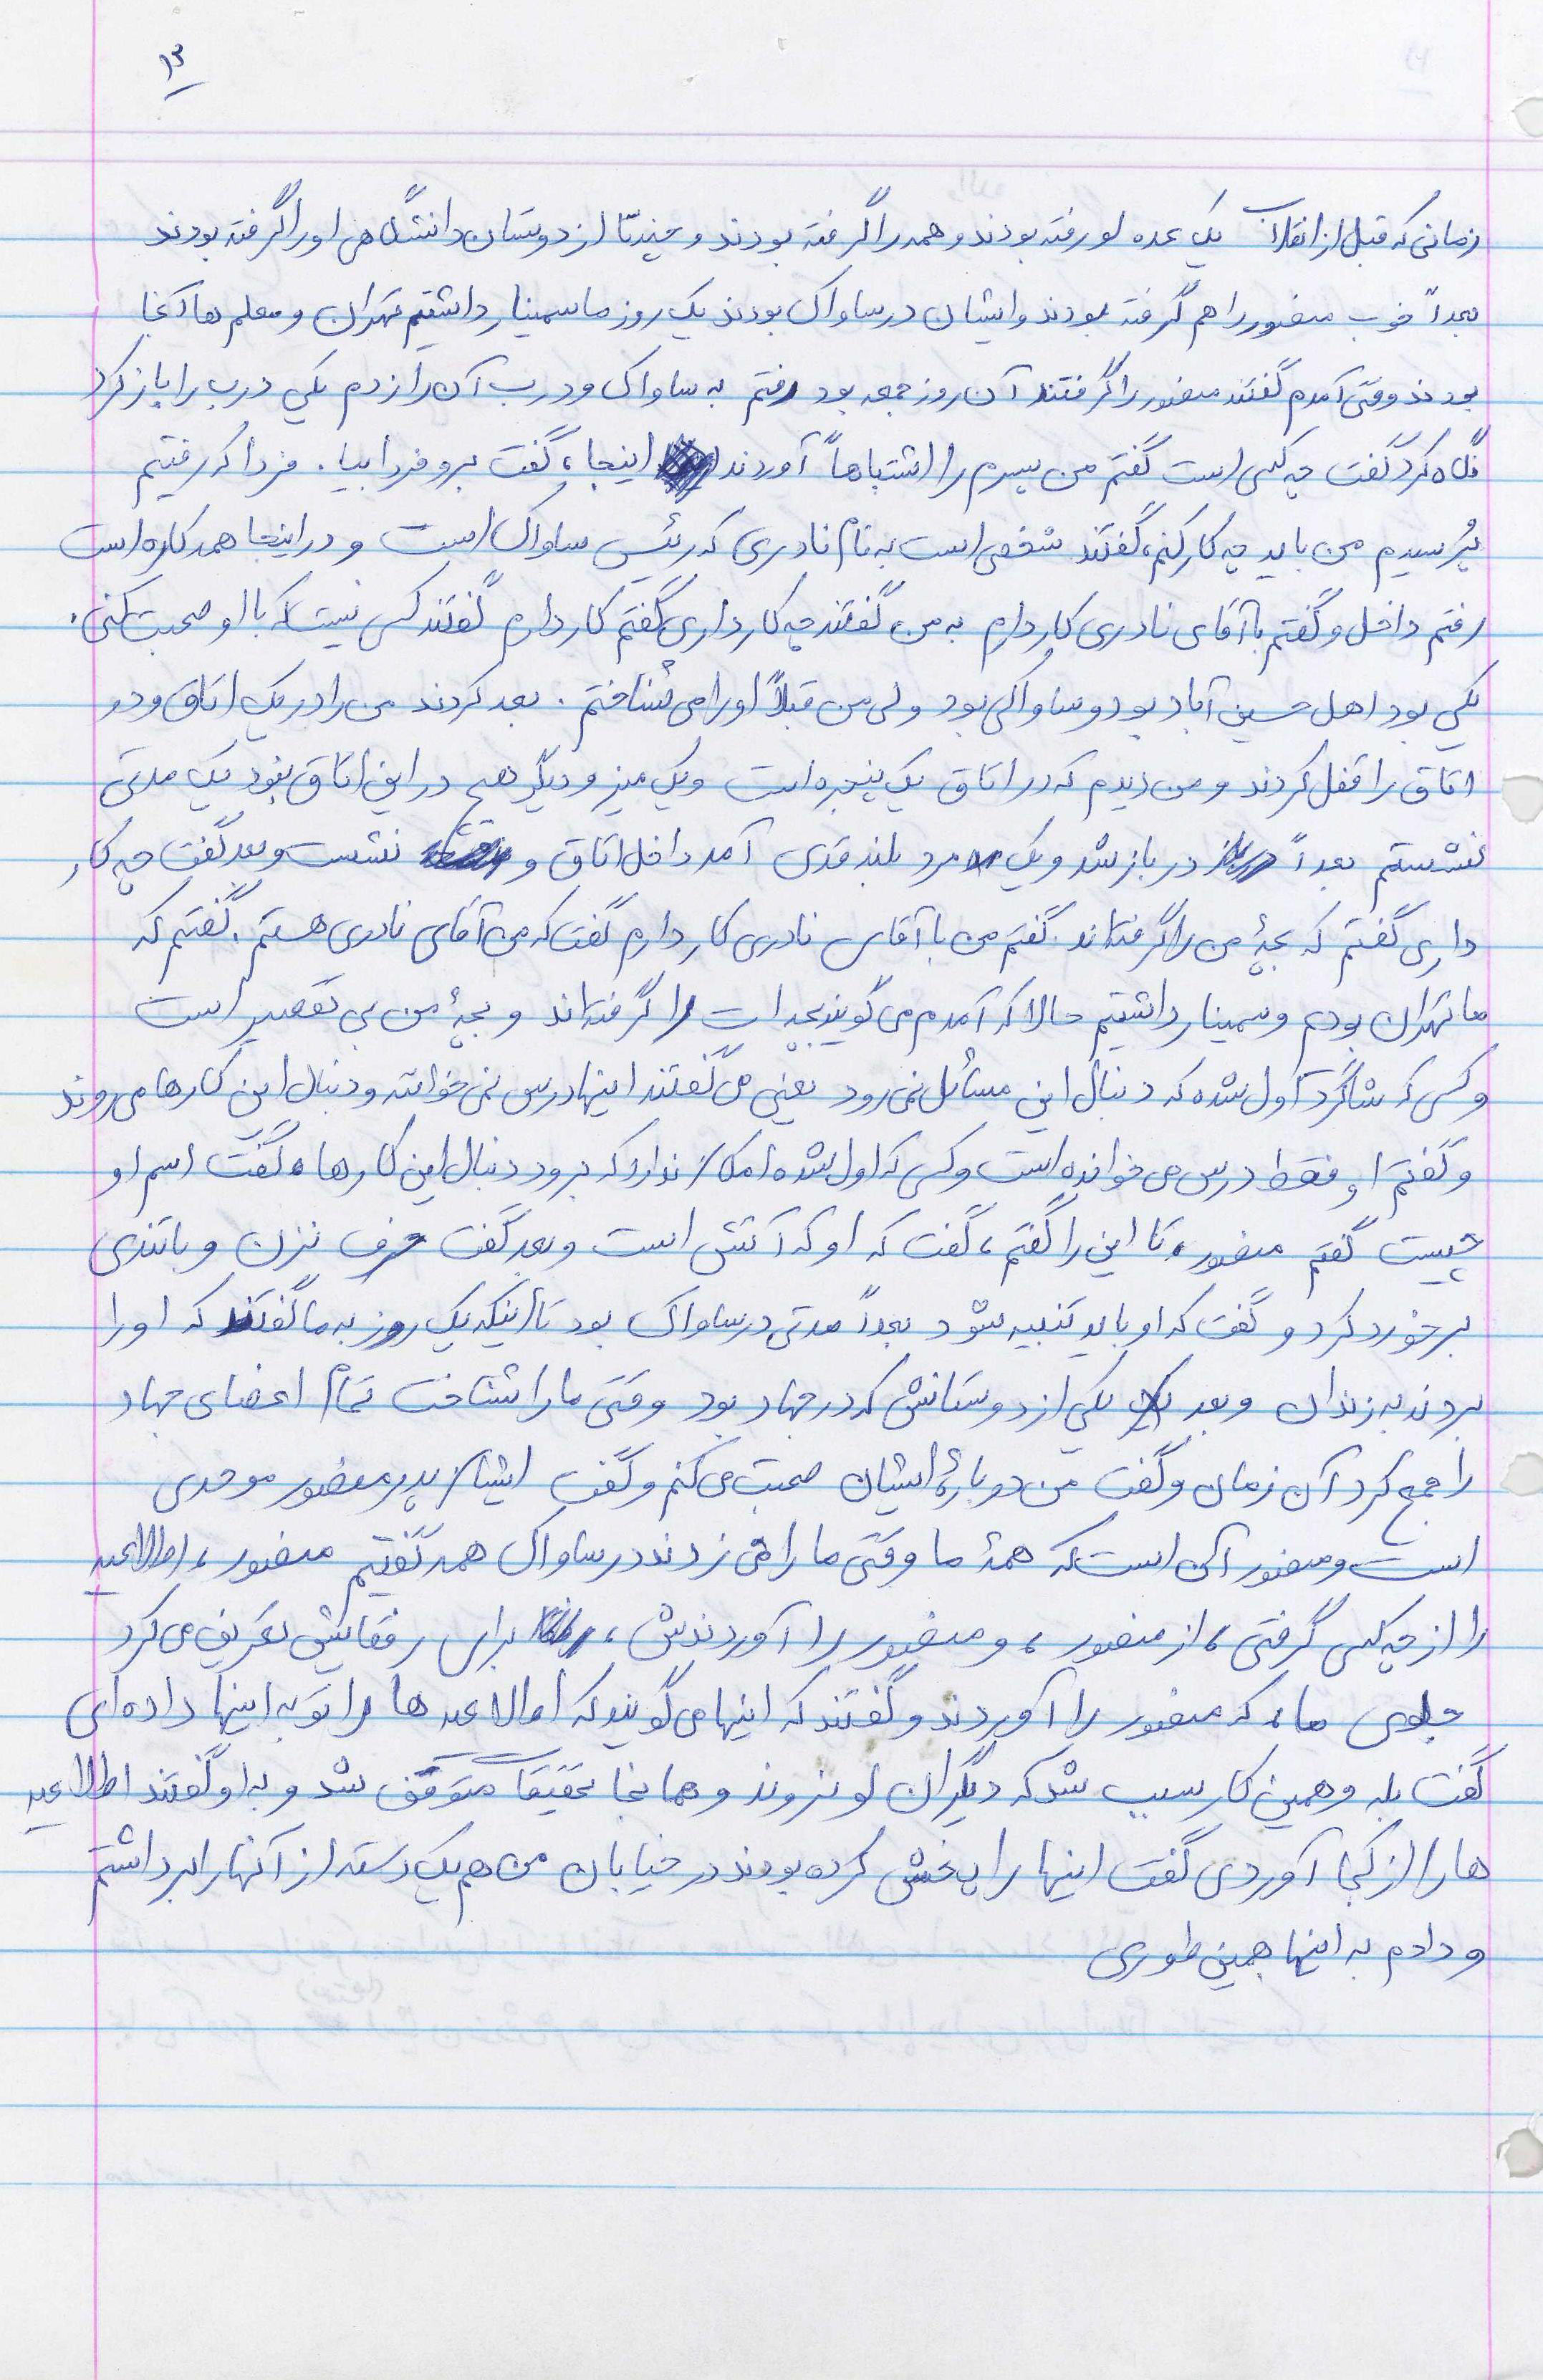 ۱۳
زمانی که قبل از انقلاب یک عده لو رفته بودند و همه را گرفته بودند و چندتا از دوستان دانشگاهی او را گرفته بودند
بعداً خوب منصور را هم گرفته بودند و ایشان در ساواک بودند یک روز ما سمینار داشتیم تهران و معلم ها آنجا
بودند وقتی آمدم گفتند منصور را گرفتند آن روز جمعه بود رفتم به ساواک و درب آن را زدم یکی درب را باز کرد
نگاه کرد گفت چه کسی است گفتم من پسرم را اشتباهاً آوردند اینجا، گفت برو فردا بیا. فردا که رفتیم
پُرسیدم من باید چه کار کنم، گفتند شخصی است به نام نادری که رئیس ساواک است و در اینجا همه کاره است
رفتم داخل و گفتم با آقای نادری کار دارم به من گفتند چه کار داری گفتم کار دارم گفتند کسی نیست که با او صحبت کنی.
یکی بود اهل حسین آباد بود و ساواکی بود ولی من قبلاً او را می شناختم. بعد کردند من را در یک اتاق و در
اتاق را قفل کردند و من دیدم که در اتاق یک پنجره است و یک میز و دیگر هیچ در این اتاق نبود یک مدتی
نشستم بعداً در باز شد و یک مرد بلند قدی آمد داخل اتاق و نشست و بعد گفت چه کار
داری گفتم که بچۀ من را گرفته‌اند. گفتم من با آقای نادری کار دارم گفت که من آقای نادری هستم. گفتم که
ما تهران بودم و سمینار داشتیم حالا که آمدم می گویند بچه ات را گرفته‌اند و بچۀ من بی تقصیر است
و کسی که شاگرد اول شده که دنبال این مسائل نمی رود یعنی می گفتند اینها درس نمی خوانند و دنبال این کارها می روند
و گفتم او فقط درس می خوانده است و کسی که اول شده امکان ندارد که برود دنبال این کارها، گفت اسم او
چیست گفتم منصور، تا این را گفتم، گفت که او که آتش است و بعد گفت حرف نزن و با تندی
برخورد کرد و گفت که او باید تنبیه شود بعداً مدتی در ساواک بود تا اینکه یک روز به ما گفتند که او را
بردند به زندان و بعد یکی از دوستانش که در جهاد بود وقتی ما را شناخت تمام اعضای جهاد
را جمع کرد آن زمان و گفت من دوبارۀ ایشان صحبت می کنم و گفت ایشان پدر منصور موحدی
است و منصور آن است که همۀ ما وقتی ما را می زدند در ساواک همه گفتیم منصور، اطلاعیه
را از چه کسی گرفتی، از منصور، و منصور را آوردندش، برای رفقایش تعریف می کرد
جلوی ما، که منصور را آوردند و گفتند که اینها می گویند که اطلاعیه ها را تو به اینها داده ای
گفت بله و همین کار سبب شد که دیگران لو نروند و همانجا تحقیقات متوقف شد و به او گفتند اطلاعیه
ها را از کجا آوردی گفت اینها را پخش کرده بودند در خیابان من هم یک دسته از آنها را برداشتم
و دادم به اینها همین طوری